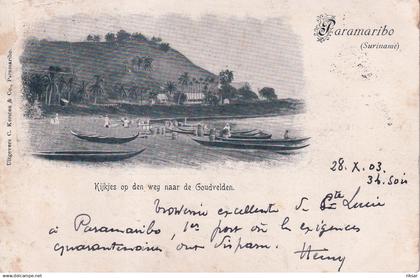 Paramaribo
(Suriname)
Uitgevers C. Kersten & Co., Paramaribo.
Kijkjes op den weg naar de Goudvelden.
28.X.03
3h. soir
excellente de Ste Lucie
à Paramaribo, 1er port où les exigences
quarantenaires ont disparu.
Henry